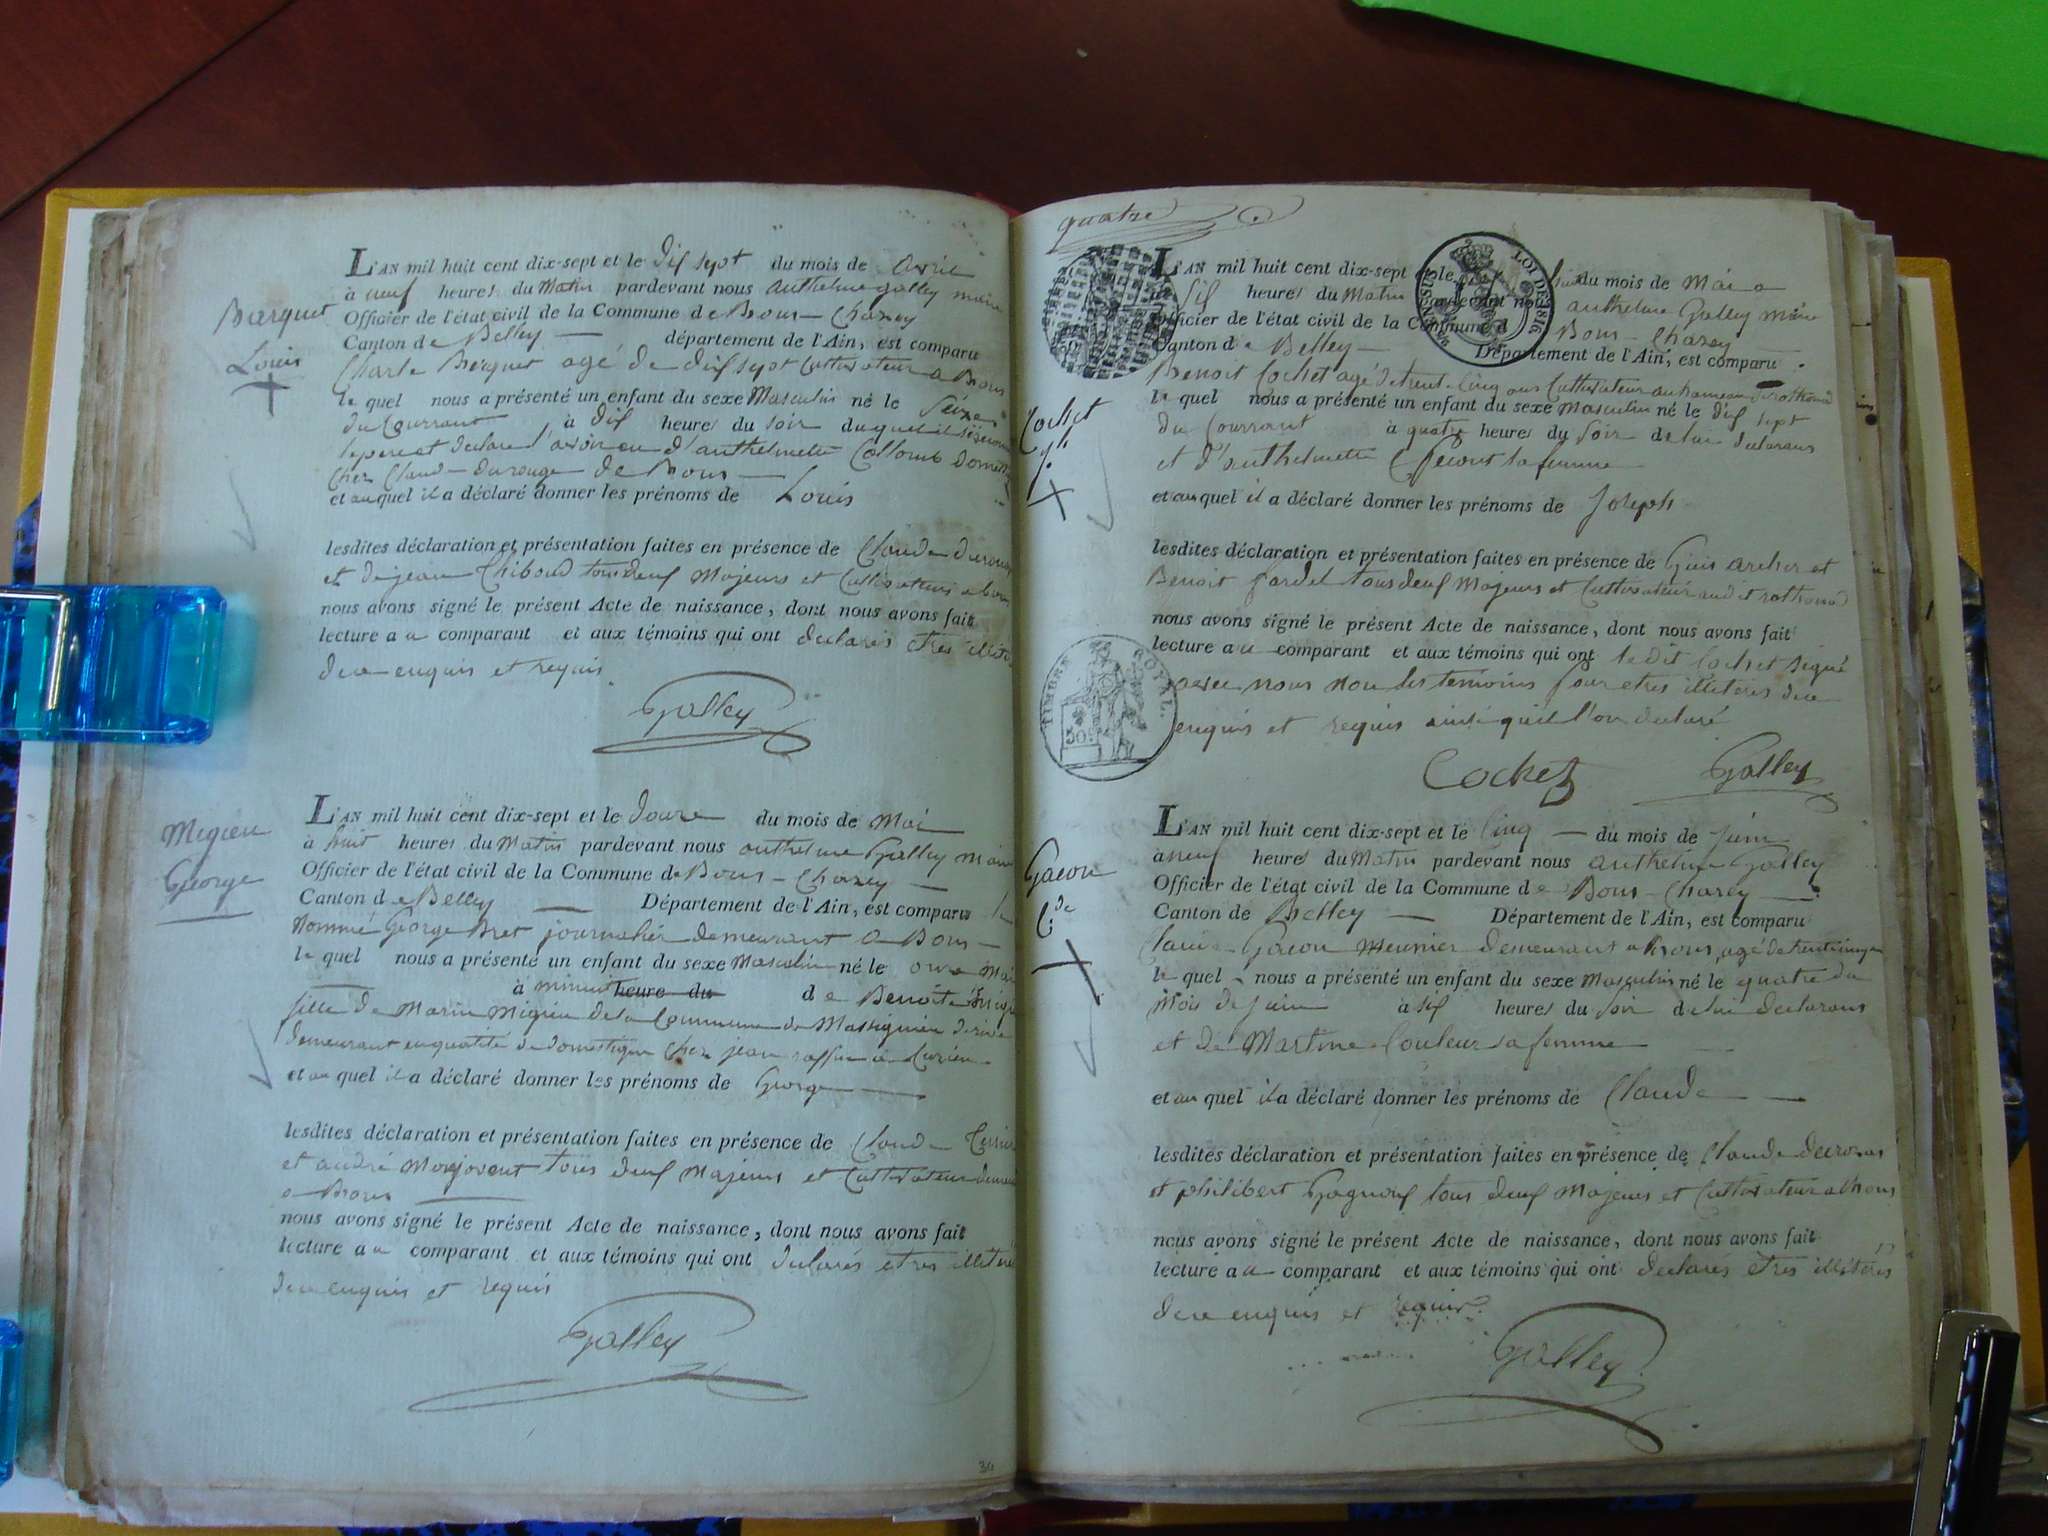 Barquet
Louis
L'AN mil huit cent dix-sept et le dix sept du mois de avril
à neuf heures du Matin pardevant nous anthelme galley maire
Officier de l'état civil de la Commune de Bons-Chazey
Canton de Belley département de l'Ain, est comparu
Charle Berquet agé de dix sept Cultivateur a Bons
le quel nous a présenté un enfant du sexe Masculin né le Seize
du Courrant à dix heures du soir duquel il
le pere et declare avoir eu d'anthelmette Collomb
chez Claud de Bons
et auquel il a déclaré donner les prénoms de Louis
lesdites déclaration et présentation faites en présence de Claude
et de jean Chiboud tous deux Majeurs et Cultivateurs a bons
nous avons signé le présent Acte de naissance, dont nous avons fait
lecture au comparant et aux témoins qui ont declarés etres
de ce enquis et requis
Galley
Migieu
George
L'AN mil huit cent dix-sept et le douze du mois de Mai
à huit heures du Matin pardevant nous anthelme Galley Maire
Officier de l'état civil de la Commune de Bons-Chazey
Canton de Belley Département de l'Ain, est comparu le
nommé George Bret journalier demeurant a Bons
le quel nous a présenté un enfant du sexe Masculin né le onze Mai
à minuit heure du de Benoite
fille de Marin Migieu de la Commune de Massignieu de rive
demeurant en qualité de domestique chez jean
et au quel il a déclaré donner les prénoms de George
lesdites déclaration et présentation faites en présence de Claude
et andré Monjovent tous deux Majeurs et Cultivateur
a Bons
nous avons signé le présent Acte de naissance, dont nous avons fait
lecture au comparant et aux témoins qui ont declarés etres
de ce enquis et requis
Galley
34
quatre
Cochet
jh
L'AN mil huit cent dix-sept et le du mois de Mai a
six heures du Matin pardevant nous anthelme Galley Maire
Officier de l'état civil de la Commune de Bons-Chazey
Canton de Belley Département de l'Ain, est comparu
LOI DE 1816
Benoit Cochet agé de trente cinq ans Cultivateur au hameau de rothonod
le quel nous a présenté un enfant du sexe Masculin né le dix sept
du Courrant à quatre heures du soir de lui declarans
et d'anthelmette sa femme
et au quel il a déclaré donner les prénoms de Joseph
lesdites déclaration et présentation faites en présence de archer et
Benoit tous deux Majeurs et Cultivateur audit rothonod
nous avons signé le présent Acte de naissance, dont nous avons fait
lecture au comparant et aux témoins qui ont le dit Cochet signé
avec nous non les temoins pour etres illiteres de ce
enquis et requis ainsi qu'il l'on declaré
TIMBRE ROYAL
50
Cochet Galley
Gacon
C.de
L'AN mil huit cent dix-sept et le Cinq du mois de juin
a neuf heures du Matin pardevant nous anthelme Galley
Officier de l'état civil de la Commune de Bons-Chazey
Canton de Belley Département de l'Ain, est comparu
Claude Gacon meunier demeurant a Bons, agé de
le quel nous a présenté un enfant du sexe Masculin né le quatre du
mois de juin à six heures du soir de lui declarans
et de Martine Couleur sa femme
et au quel il a déclaré donner les prénoms de Claude
lesdites déclaration et présentation faites en présence de Claude
et philibert tous deux Majeurs et Cultivateur a Bons
nous avons signé le présent Acte de naissance, dont nous avons fait
lecture au comparant et aux témoins qui ont declarés etres illiteres
de ce enquis et requis.
Galley